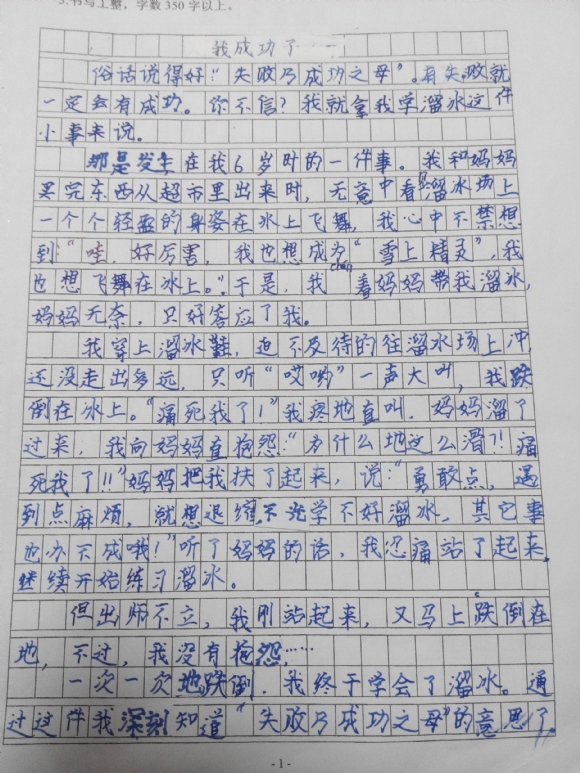 3.书写工整，字数350字以上。
我成功了——
俗话说得好“失败乃成功之母”。有失败就
一定会有成功。你不信？我就拿我学溜冰这件
小事来说。
那是发生在我6岁时的一件事。我和妈妈
买完东西从超市里出来时，无意中看溜冰场上
一个个轻盈的身姿在冰上飞舞，我心中不禁想
到“哇，好厉害，我也想成为“雪上精灵”，我
也想飞舞在冰上。”于是，我chán着妈妈带我溜冰，
妈妈无奈，只好答应了我。
我穿上溜冰鞋，迫不及待的往溜冰场上冲，
还没走出多远，只听“哎哟”一声大叫，我跌
倒在冰上。“痛死我了！”我疼地直叫，妈妈溜了
过来，我向妈妈直抱怨：“为什么地这么滑？！痛
死我了！！”妈妈把我扶了起来，说：“勇敢点，遇
到点麻烦，就想退缩，不光学不好溜冰，其它事
也办不成哦！”听了妈妈的话，我忍痛站了起来，
继续开始练习溜冰。
但出师不立，我刚站起来，又马上跌倒在
地，不过，我没有抱怨……
一次一次地跌倒，我终于学会了溜冰。通
过这件我深刻知道“失败乃成功之母”的意思了。
-1-